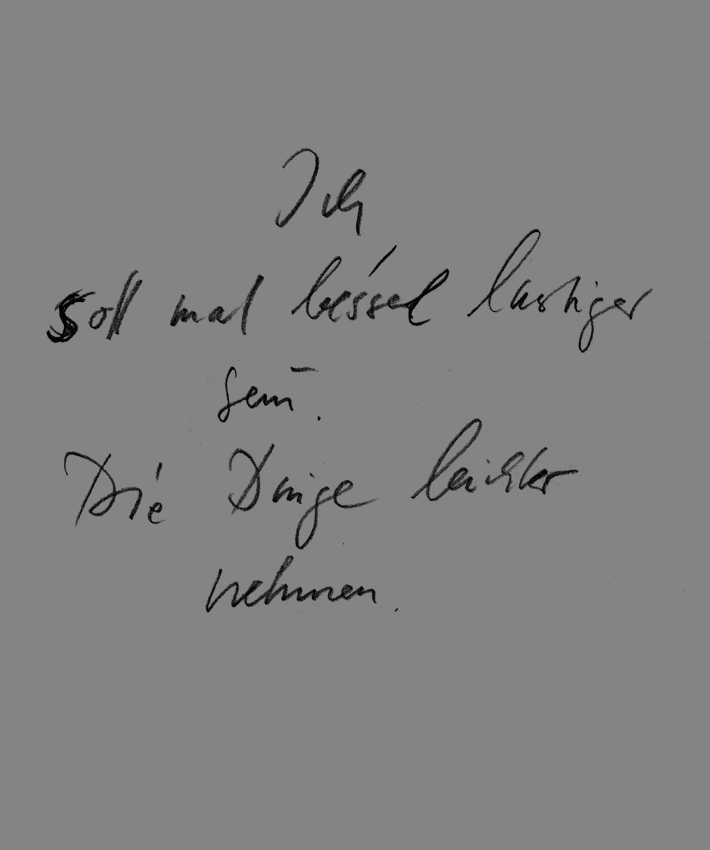 Ich
soll mal lustiger
sein.
Die Dinge leichter
nehmen.